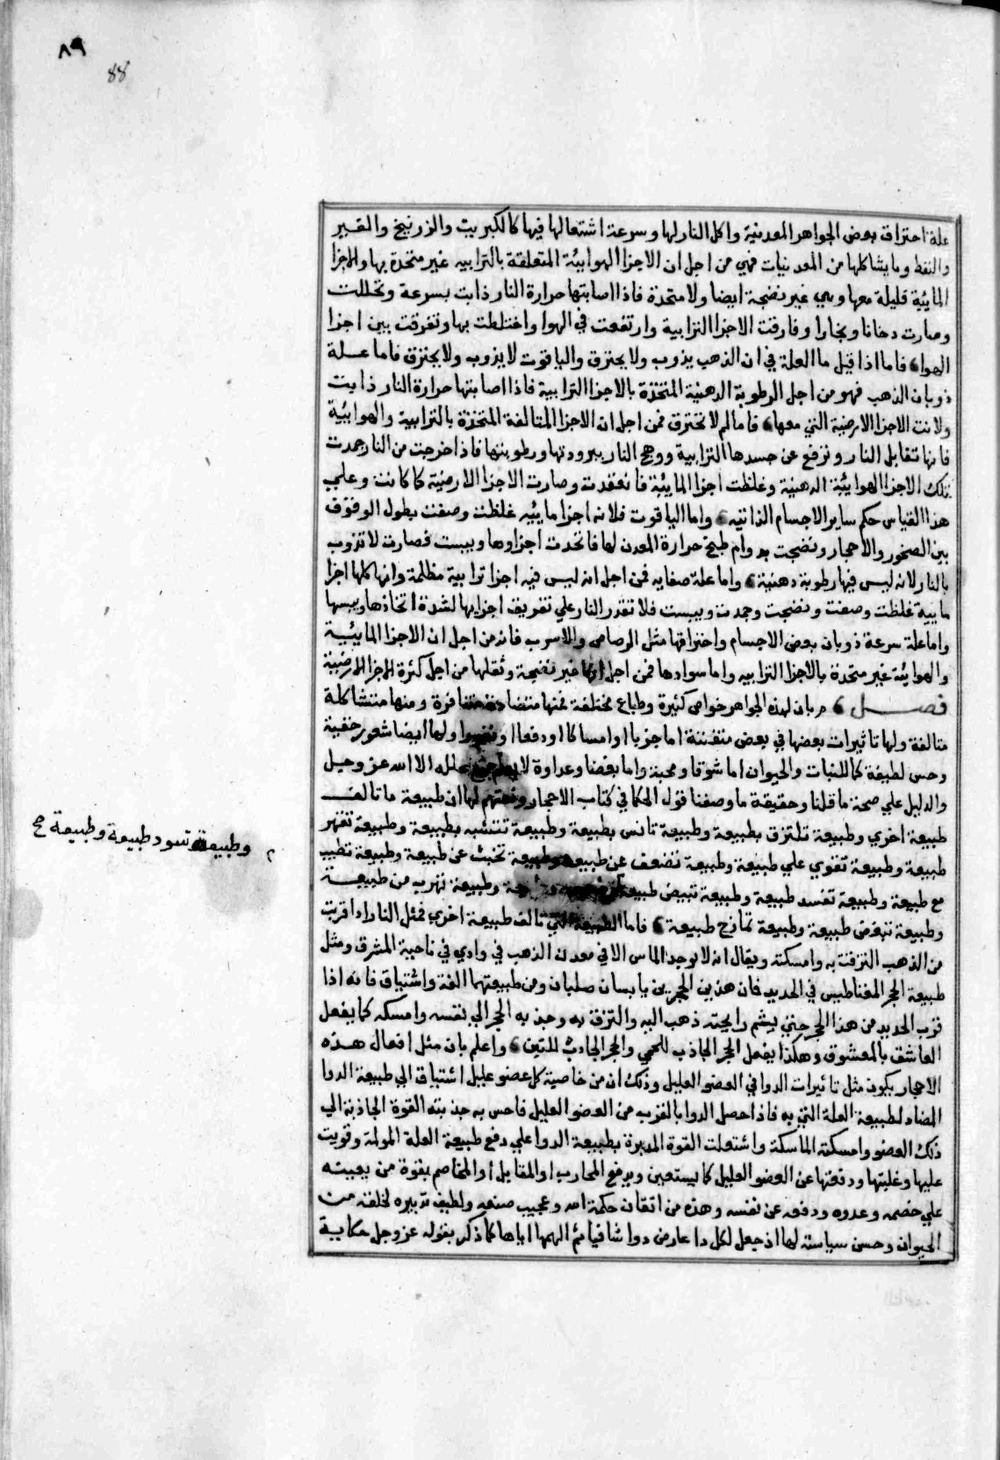 ٨٩
88
علة احتراق بعض الجواهر المعدنية واكل النار لها وسرعة اشتعالها فيها كالكبريت والزرنيخ والقير
والنفط وما يشاكلها من المعدنيات فهي من اجل ان الاجزا الهوايية المتعلقة بالترابيه غير متحدة بها والاجزا
المائية قليلة معها وهي غير نضيجة ايضا ولا متحدة فاذا اصابتها حرارة النار ذابت بسرعة وتحللت
وصارت دخانا وبخارا وفارقت الاجزا الترابية وارتفعت في الهوا واختلطت بها وتفرقت بين اجزا
الهوا فاما اذا قيل ما العلة في ان الذهب يذوب ولا يحترق والياقوت لا يذوب ولا يحترق فاما علة
ذوبان الذهب فهو من اجل الرطوبة الدهنية المتحدة بالاجزا الترابية فاذا اصابتها حرارة النار ذابت
ولانت الاجزا الارضية التي معها فاما لم لا تحترق فمن اجل ان الاجزا المتالفة المتحدة بالترابية والهوايية
فانها تقابل النار وتدفع عن جسدها الترابية ووهج النار ببرودتها ورطوبتها فاذا خرجت من النار جمدت
تلك الاجزا الهوايية الدهنية وغلظت اجزا المايية فانعقدت وصارت الاجزا الارضية كما كانت وعلي
هذا القياس حكم ساير الاجسام الذائبه واما الياقوت فلانه اجزا مايية غلظت وصفت بطول الوقوف
بين الصخور والاحجار ونضجت بدوام طبخ حرارة المعدن لها فاتحدت اجزاوها ويبست فصارت لا تذوب
بالنار لانه ليس فيها رطوبة دهنية واما علة صفايه فمن اجل انه ليس فيه اجزا ترابية مظلمة وانها كلها اجزا
مايية غلظت وصفت ونضجت وجمدت ويبست فلا تقدر النار علي تفريق اجزايها لشدة اتحادها ويبسها
واما علة سرعة ذوبان بعض الاجسام واحتراقها مثل الرصاص والاسرب فانه من اجل ان الاجزا المايية
والهوايية غير متحدة بالاجزا الترابيه واما سوادها فمن اجل انها غير نضيجة وثقلها من اجل كثرة الاجزا الارضية
فصل بان لهذه الجواهر خواص كثيرة وطباع مختلفة فمنها متضادة متنافرة ومنها متشاكلة
متالفة ولها تاثيرات بعضها في بعض متفننة اما جزبا او امساكا او دفعا او ولها ايضا شعور خفية
وحس لطيفة كما للنبات والحيوان اما شوقا ومحبة واما بغضا وعداوة لا الا الله عز وجل
والدليل علي صحة ما قلنا وحقيقة ما وصفنا قول الحكما في كتاب الاحجار لها ان طبيعة ما تالف
طبيعة اخري وطبيعة تلتزق بطبيعة وطبيعة تانس بطبيعة وطبيعة تتشبه بطبيعة وطبيعة تقهر
طبيعة وطبيعة تقوي علي طبيعة وطبيعة تضعف عن طبيعة وطبيعة تخبث عن طبيعة وطبيعة تطيب
مع طبيعة وطبيعة تفسد طبيعة وطبيعة تبيض طبيعة وطبيعة تهرب من طبيعة
وطبيعة تبغض طبيعة وطبيعة تمازج طبيعة فاما الطبيعة التي تالف طبيعة اخري فمثل الناراد اقربت
من الذهب التزقت به وامسكته ويقال انه لا يوجد الماس الا في معدن الذهب في وادي في ناحية المشرق ومثل
طبيعة الحجر المغناطيس في الحديد فان هذين الحجرين يابسان صلبان ومن طبيعتهما الفة واشتياق فانه اذا
قرب الحديد من هذا الحجر حتي يشم رايحته ذهب اليه والتزق به وجذبه الحجر الي نفسه وامسكه كما يفعل
العاشق بالمعشوق وهكذا يفعل الحجر الجاذب للحمي والحجر الجاذب للتبن واعلم بان مثل افعال هذه
الاحجار يكون مثل تاثيرات الدوا في العضو العليل وذلك ان من خاصية كل عضو عليل اشتياق الي طبيعة الدوا
المضاد لطبيعة العلة التي به فاذا حصل الدوا بالقرب من العضو العليل فاحس به جذبته القوة الجاذبة الي
ذلك العضو وامسكته الماسكة واشتعلت القوة المدبرة بطبيعة الدوا علي دفع طبيعة العلة المولمة وقويت
عليها وغلبتها ودفعتها عن العضو العليل كما يستعين ويدفع المحارب او المقابل او المخاصم بقوة من يعينه
علي خصمه وعدوه ودفعه عن نفسه وهذه من اتقان حكمة الله وعجيب صنعه ولطيف تدبيره لخلقه من
الحيوان وحسن سياسته لها اذ جعل لكل دا عارض دوا شافيا ثم الهمها اياها كما ذكر بقوله عز وجل حكاية
وطبيعة تسود طبيعة وطبيعة صح